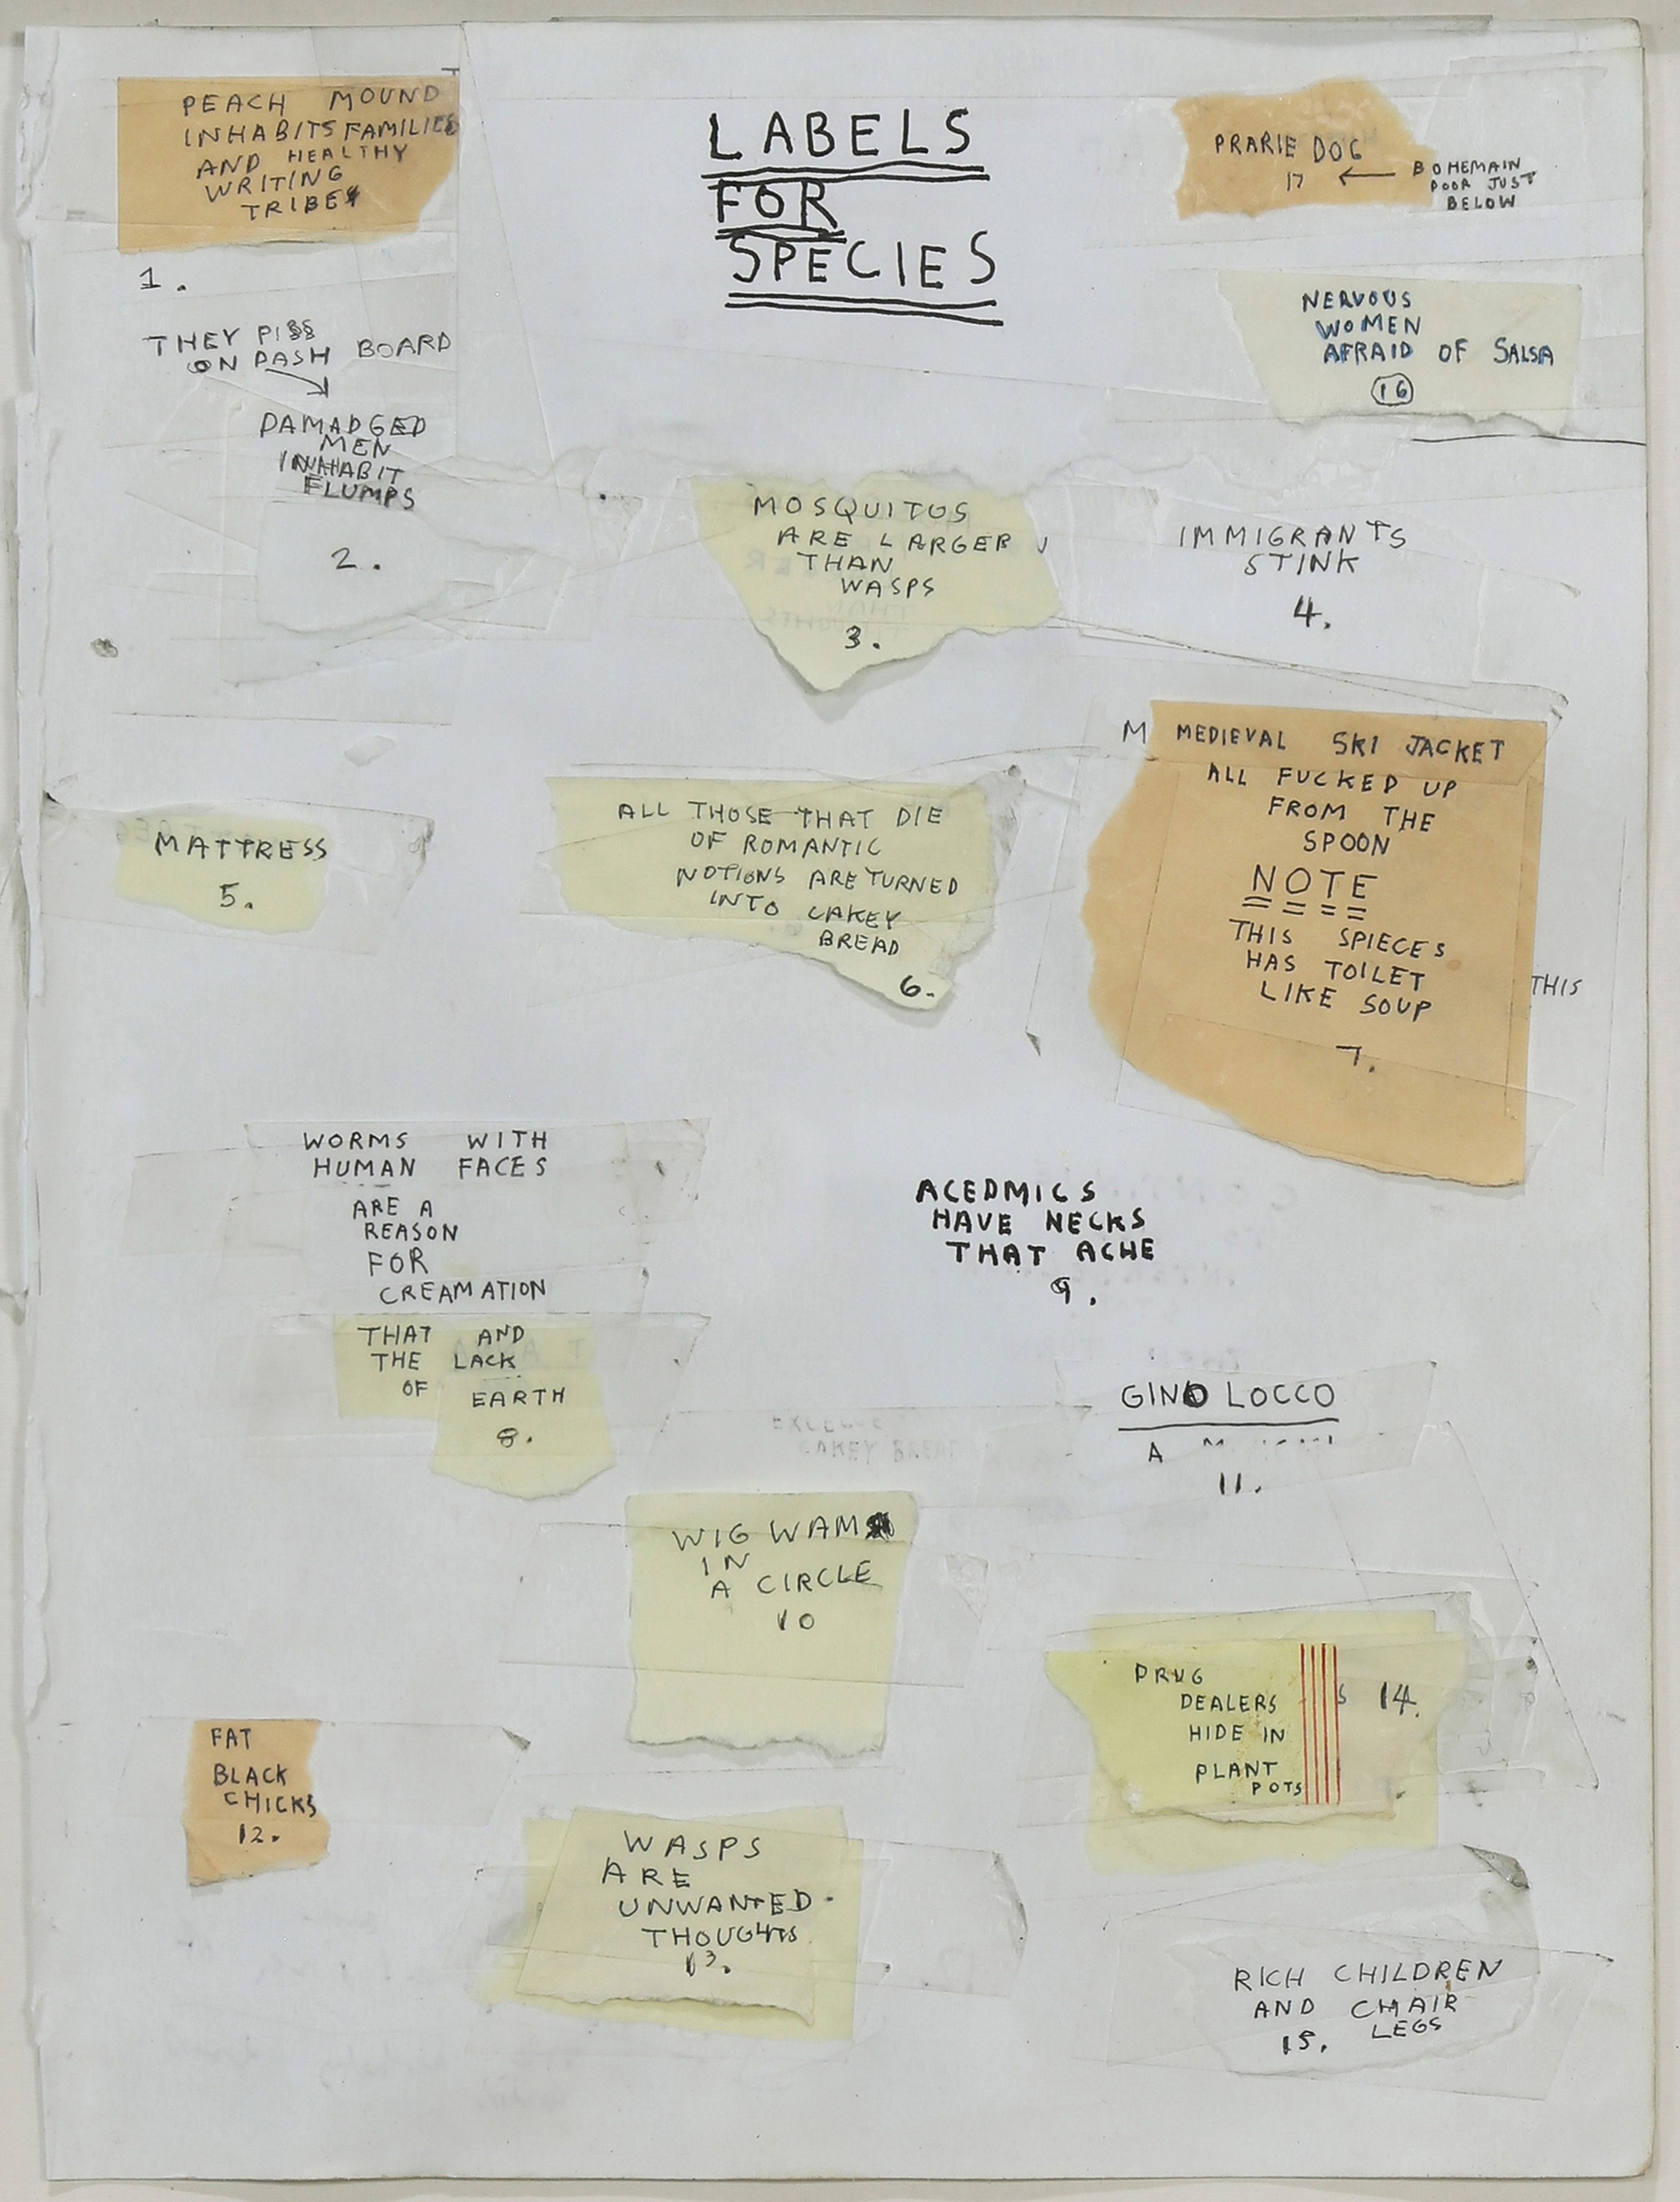 LABELS
FOR
SPECIES
PEACH MOUND
INHABITS FAMILIES
AND HEALTHY
WRITING
TRIBES
1.
THEY PISS
ON DASH BOARD
DAMADGED
MEN
INHABIT
FLUMPS
2.
MOSQUITOS
ARE LARGER
THAN
WASPS
3.
IMMIGRANTS
STINK
4.
MATTRESS
5.
ALL THOSE THAT DIE
OF ROMANTIC
NOTIONS ARE TURNED
INTO CAKEY
BREAD
6.
M MEDIEVAL SKI JACKET
ALL FUCKED UP
FROM THE
SPOON
NOTE
THIS SPIECES
HAS TOILET
LIKE SOUP
THIS
7.
WORMS WITH
HUMAN FACES
ARE A
REASON
FOR
CREAMATION
THAT AND
THE LACK
OF EARTH
8.
ACEDMICS
HAVE NECKS
THAT ACHE
9.
CAKEY BREAD
WIG WAM
IN
A CIRCLE
10
GINO LOCCO
A
11.
FAT
BLACK
CHICKS
12.
WASPS
ARE
UNWANTED
THOUGHTS
13.
DRUG
DEALERS S 14.
HIDE IN
PLANT
POTS
RICH CHILDREN
AND CHAIR
LEGS
15.
NERVOUS
WOMEN
AFRAID OF SALSA
16
PRARIE DOG
17 ← BOHEMAIN
POOR JUST
BELOW